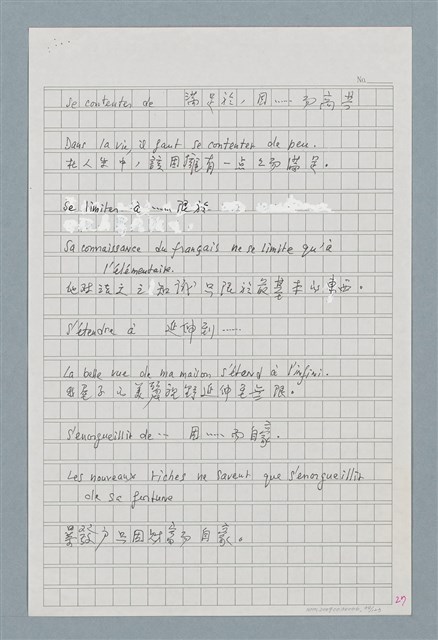 No.
se contenter de 滿足於，因……而高興
Dans la vie, il faut se contenter de peu.
在人生中，該因擁有一点点而滿足。
se limiter à …… 限於
Sa connaissance du français ne se limite qu'à
l'élémentaire.
他對法文之知識只限於最基本的東西。
s'étendre à 延伸到……
La belle vue de ma maison s'étend à l'infini.
我屋子之美麗視野延伸至無限。
s'enorgueillir de … 因……而自豪。
Les nouveaux riches ne savent que s'enorgueillir
de sa fortune
暴發戶只因財富而自豪。
27